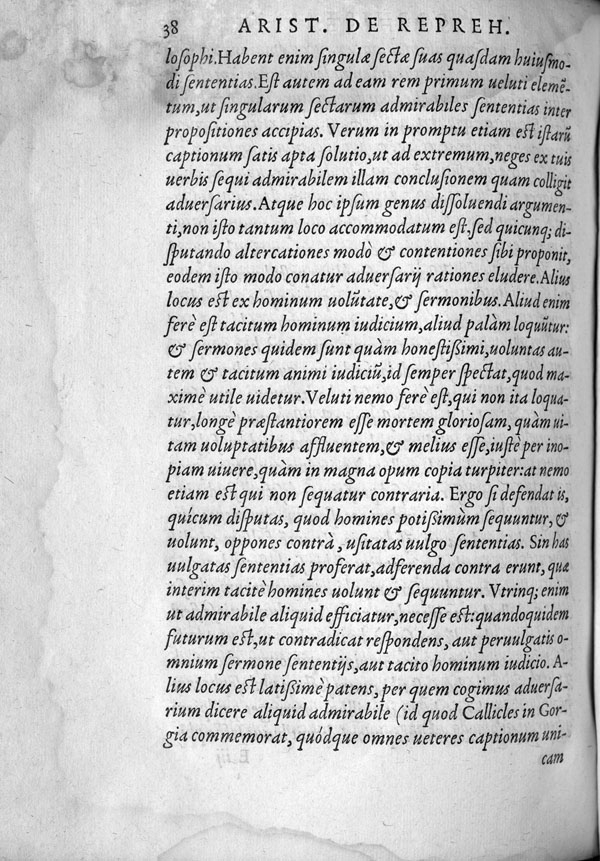 38 ARIST. DE REPREH.
losophi. Habent enim singulæ sectæ suas quasdam huiusmo-
di sententias. Est autem ad eam rem primum ueluti elemẽ-
tum, ut singularum sectarum admirabiles sententias inter
propositiones accipias. Verum in promptu etiam est istarũ
captionum satis apta solutio, ut ad extremum, neges ex tuis
uerbis sequi admirabilem illam conclusionem quam colligit
aduersarius. Atque hoc ipsum genus dissoluendi argumen-
ti, non isto tantum loco accommodatum est, sed quicunq; di-
sputando altercationes modò & contentiones sibi proponit,
eodem isto modo conatur aduersarij rationes eludere. Alius
locus est ex hominum uolũtate, & sermonibus. Aliud enim
ferè est tacitum hominum iudicium, aliud palàm loquũtur:
& sermones quidem sunt quàm honestißimi, uoluntas au-
tem & tacitum animi iudiciũ, id semper spectat, quod ma-
ximè utile uidetur. Veluti nemo ferè est, qui non ita loqua-
tur, longè præstantiorem esse mortem gloriosam, quàm ui-
tam uoluptatibus affluentem, & melius esse, iustè per ino-
piam uiuere, quàm in magna opum copia turpiter: at nemo
etiam est qui non sequatur contraria. Ergo si defendat is,
quícum disputas, quod homines potißimùm sequuntur, &
uolunt, oppones contrà, usitatas uulgo sententias. Sin has
uulgatas sententias proferat, adferenda contra erunt, quæ
interim tacitè homines uolunt & sequuntur. Vtrinq; enim
ut admirabile aliquid efficiatur, necesse est: quandoquidem
futurum est, ut contradicat respondens, aut peruulgatis o-
mnium sermone sententijs, aut tacito hominum iudicio. A-
lius locus est latißimè patens, per quem cogimus aduersa-
rium dicere aliquid admirabile (id quod Callicles in Gor-
gia commemorat, quódque omnes ueteres captionum uni-
cam